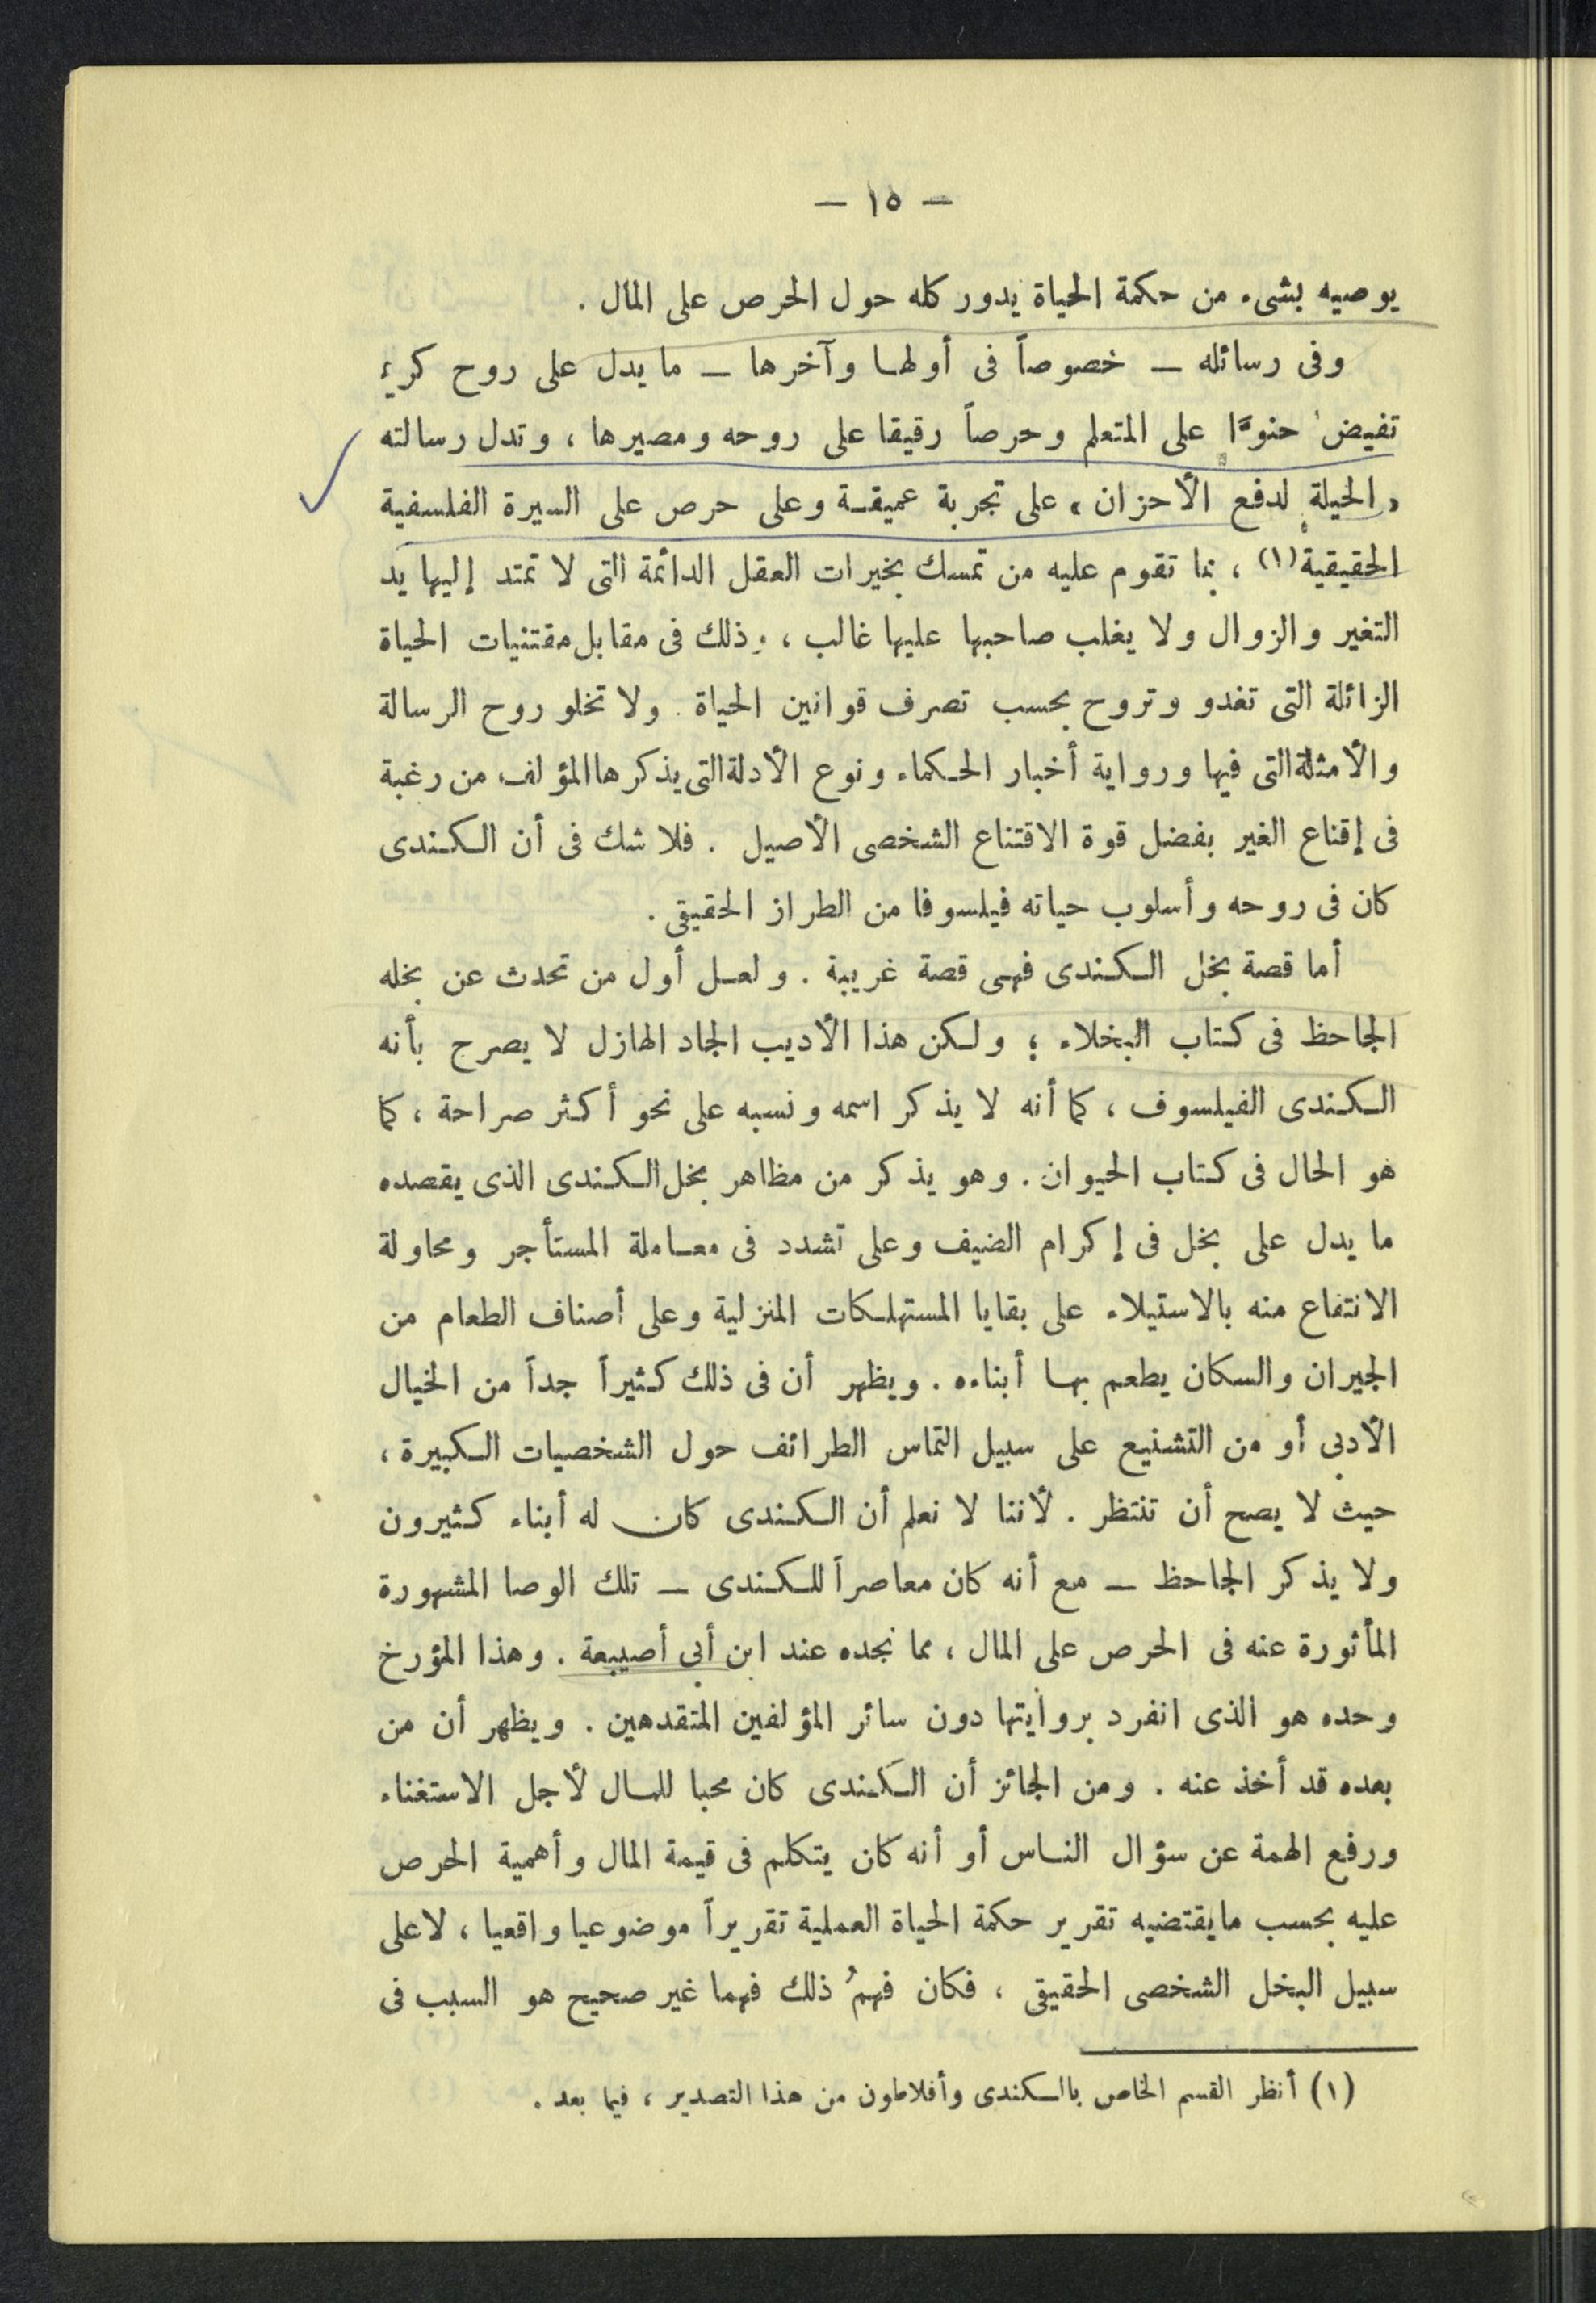 — ١٥ —
يوصيه بشىء من حكمة الحياة يدور كله حول الحرص على المال .
وفى رسائله — خصوصاً فى أولها وآخرها — ما يدل على روح كريم
تفيض حنوًّا على المتعلم وحرصاً رقيقا على روحه ومصيرها ، وتدل رسالته
« الحيلة لدفع الأحزان » على تجربة عميقة وعلى حرص على السيرة الفلسفية
الحقيقية (١) ، بما تقوم عليه من تمسك بخيرات العقل الدائمة التى لا تمتد إليها يد
التغير والزوال ولا يغلب صاحبها عليها غالب ، وذلك فى مقابل مقتنيات الحياة
الزائلة التى تغدو وتروح بحسب تصرف قوانين الحياة . ولا تخلو روح الرسالة
والأمثلة التى فيها ورواية أخبار الحكماء ونوع الأدلة التى يذكرها المؤلف من رغبة
فى إقناع الغير بفضل قوة الاقتناع الشخصى الأصيل . فلا شك فى أن الكندى
كان فى روحه وأسلوب حياته فيلسوفا من الطراز الحقيقى .
أما قصة بخل الكندى فهى قصة غريبة . ولعل أول من تحدث عن بخله
الجاحظ فى كتاب البخلاء ؛ ولكن هذا الأديب الجاد الهازل لا يصرح بأنه
الكندى الفيلسوف ، كما أنه لا يذكر اسمه ونسبه على نحو أكثر صراحة ، كما
هو الحال فى كتاب الحيوان . وهو يذكر من مظاهر بخل الكندى الذى يقصده
ما يدل على بخل فى إكرام الضيف وعلى تشدد فى معاملة المستأجر ومحاولة
الانتفاع منه بالاستيلاء على بقايا المستهلكات المنزلية وعلى أصناف الطعام من
الجيران والسكان يطعم بها أبناءه . ويظهر أن فى ذلك كثيراً جداً من الخيال
الأدبى أو من التشنيع على سبيل التماس الطرائف حول الشخصيات الكبيرة ،
حيث لا يصح أن تنتظر . لأننا لا نعلم أن الكندى كان له أبناء كثيرون
ولا يذكر الجاحظ — مع أنه كان معاصراً للكندى — تلك الوصا المشهورة
المأثورة عنه فى الحرص على المال ، مما نجده عند ابن أبى أصيبعة . وهذا المؤرخ
وحده هو الذى انفرد بروايتها دون سائر المؤلفين المتقدمين . ويظهر أن من
بعده قد أخذ عنه . ومن الجائز أن الكندى كان محبا للمال لأجل الاستغناء
ورفع الهمة عن سؤال الناس أو أنه كان يتكلم فى قيمة المال وأهمية الحرص
عليه بحسب ما يقتضيه تقرير حكمة الحياة العملية تقريراً موضوعيا واقعيا ، لا على
سبيل البخل الشخصى الحقيقى ، فكان فهمُ ذلك فهما غير صحيح هو السبب فى
(١) أنظر القسم الخاص بالكندى وأفلاطون من هذا التصدير ، فيما بعد .